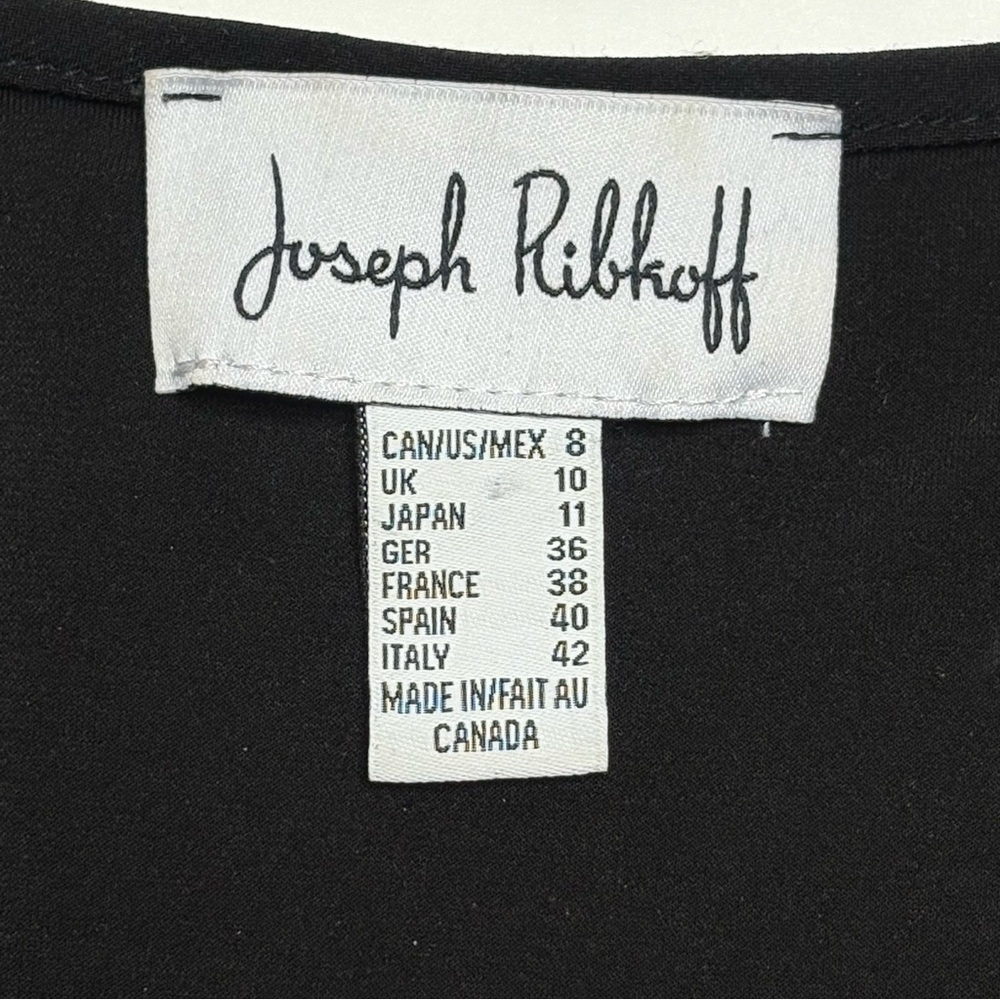 Joseph Ribkoff
CAN/US/MEX 8
UK 10
JAPAN 11
GER 36
FRANCE 38
SPAIN 40
ITALY 42
MADE IN/FAIT AU
CANADA